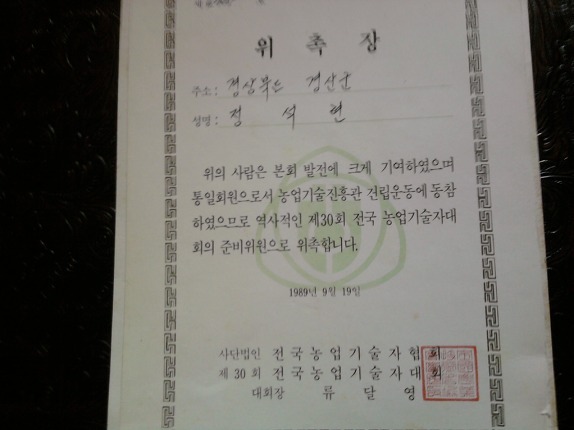 위 촉 장
주소 : 경상북도 경산군
성명 : 정 석 현
위의 사람은 본회 발전에 크게 기여하였으며
통일회원으로서 농업기술진흥관 건립운동에 동참
하였으므로 역사적인 제30회 전국 농업기술자대
회의 준비위원으로 위촉합니다.
1989년 9월 19일
사단법인 전국농업기술자협회
제 30 회 전국농업기술자대회
대회장 류 달 영